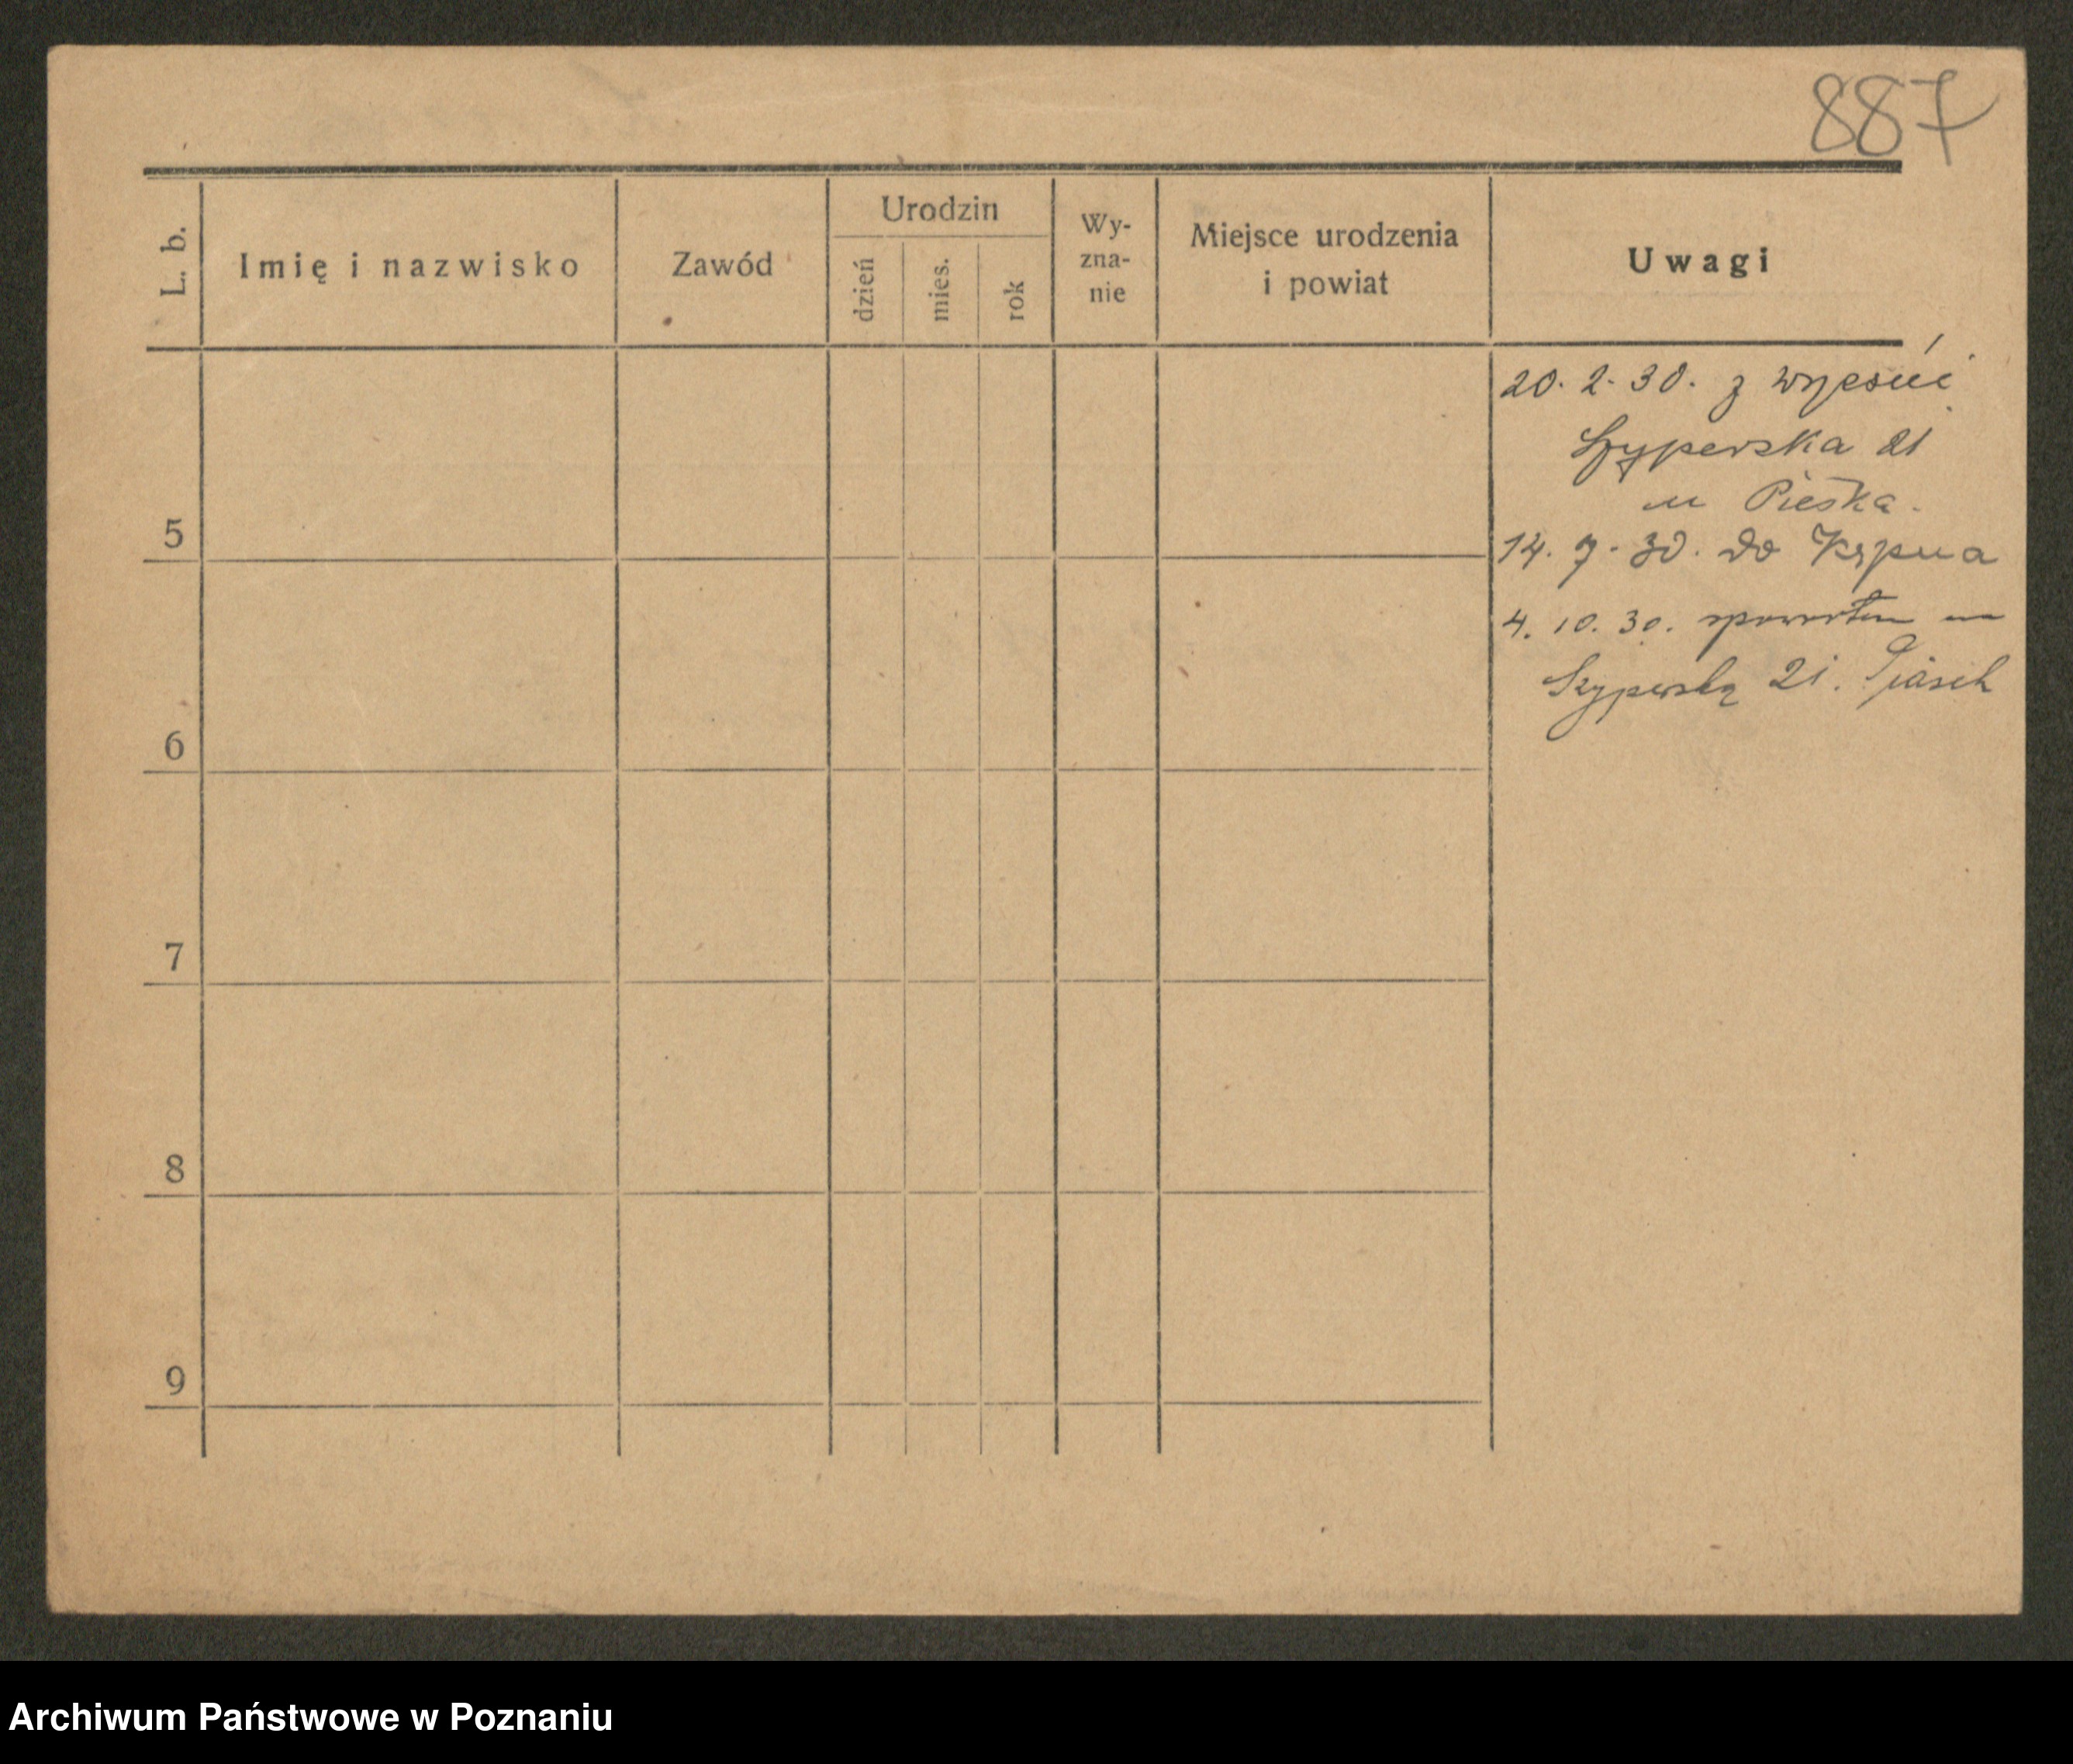 887
L. b.
Imię i nazwisko
Zawód
Urodzin
dzień
mies.
rok
Wy-
zna-
nie
Miejsce urodzenia
i powiat
Uwagi
20. 2. 30. z Wrześni
Szyperska 21
u
14. 7. 30. do Kępna
4. 10. 30. spowrotem na
Szyperską 21.
5
6
7
8
9
Archiwum Państwowe w Poznaniu